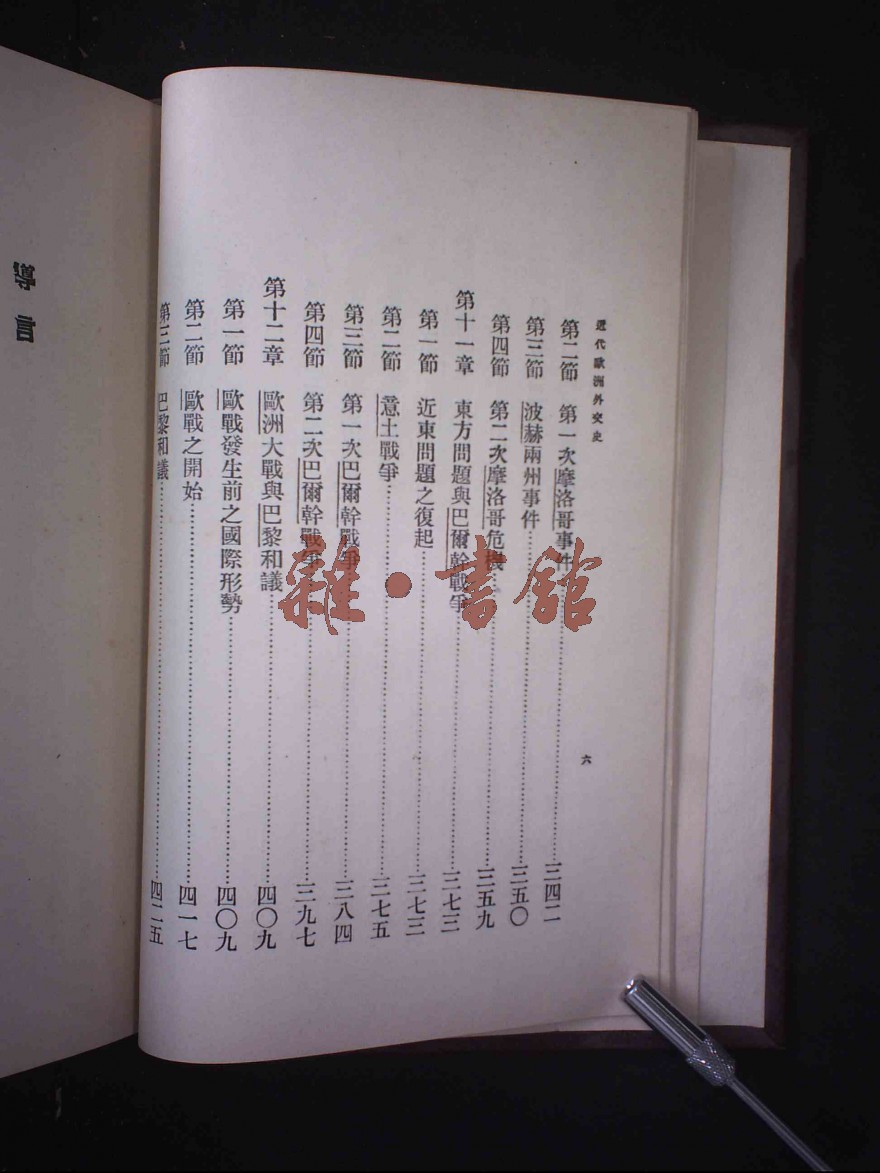 近代歐洲外交史
六
第二節 第一次摩洛哥事件……三四二
第三節 波赫兩州事件……三五〇
第四節 第二次摩洛哥危機……三五九
第十一章 東方問題與巴爾幹戰爭……三七三
第一節 近東問題之復起……三七三
第二節 意土戰爭……三七五
第三節 第一次巴爾幹戰爭……三八四
第四節 第二次巴爾幹戰爭……三九七
第十二章 歐洲大戰與巴黎和議……四〇九
第一節 歐戰發生前之國際形勢……四〇九
第二節 歐戰之開始……四一七
第三節 巴黎和議……四二五
導言
雜·書館